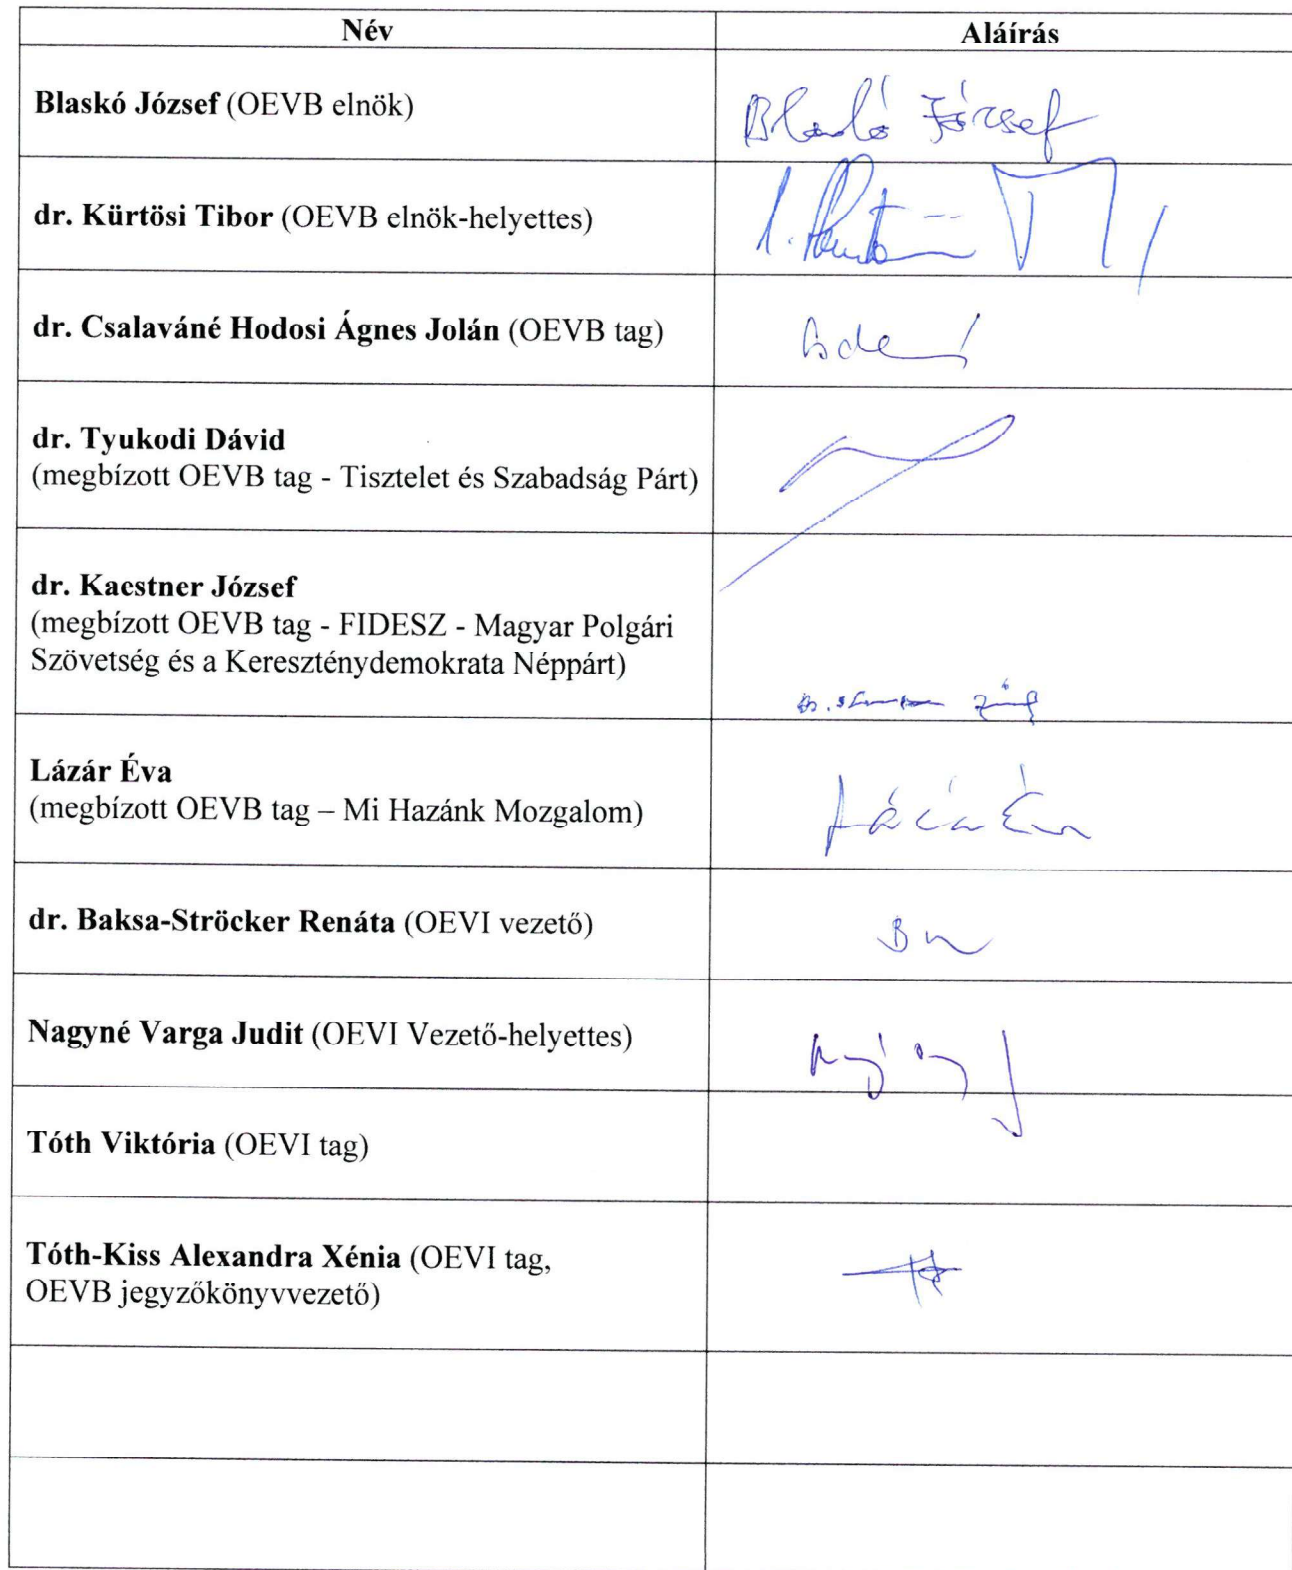 Név Aláírás
Blaskó József (OEVB elnök) Blaskó József
dr. Kürtösi Tibor (OEVB elnök-helyettes)
dr. Csalaváné Hodosi Ágnes Jolán (OEVB tag)
dr. Tyukodi Dávid
(megbízott OEVB tag - Tisztelet és Szabadság Párt)
dr. Kaestner József
(megbízott OEVB tag - FIDESZ - Magyar Polgári
Szövetség és a Kereszténydemokrata Néppárt)
Lázár Éva
(megbízott OEVB tag – Mi Hazánk Mozgalom)
dr. Baksa-Ströcker Renáta (OEVI vezető)
Nagyné Varga Judit (OEVI Vezető-helyettes)
Tóth Viktória (OEVI tag)
Tóth-Kiss Alexandra Xénia (OEVI tag,
OEVB jegyzőkönyvvezető)